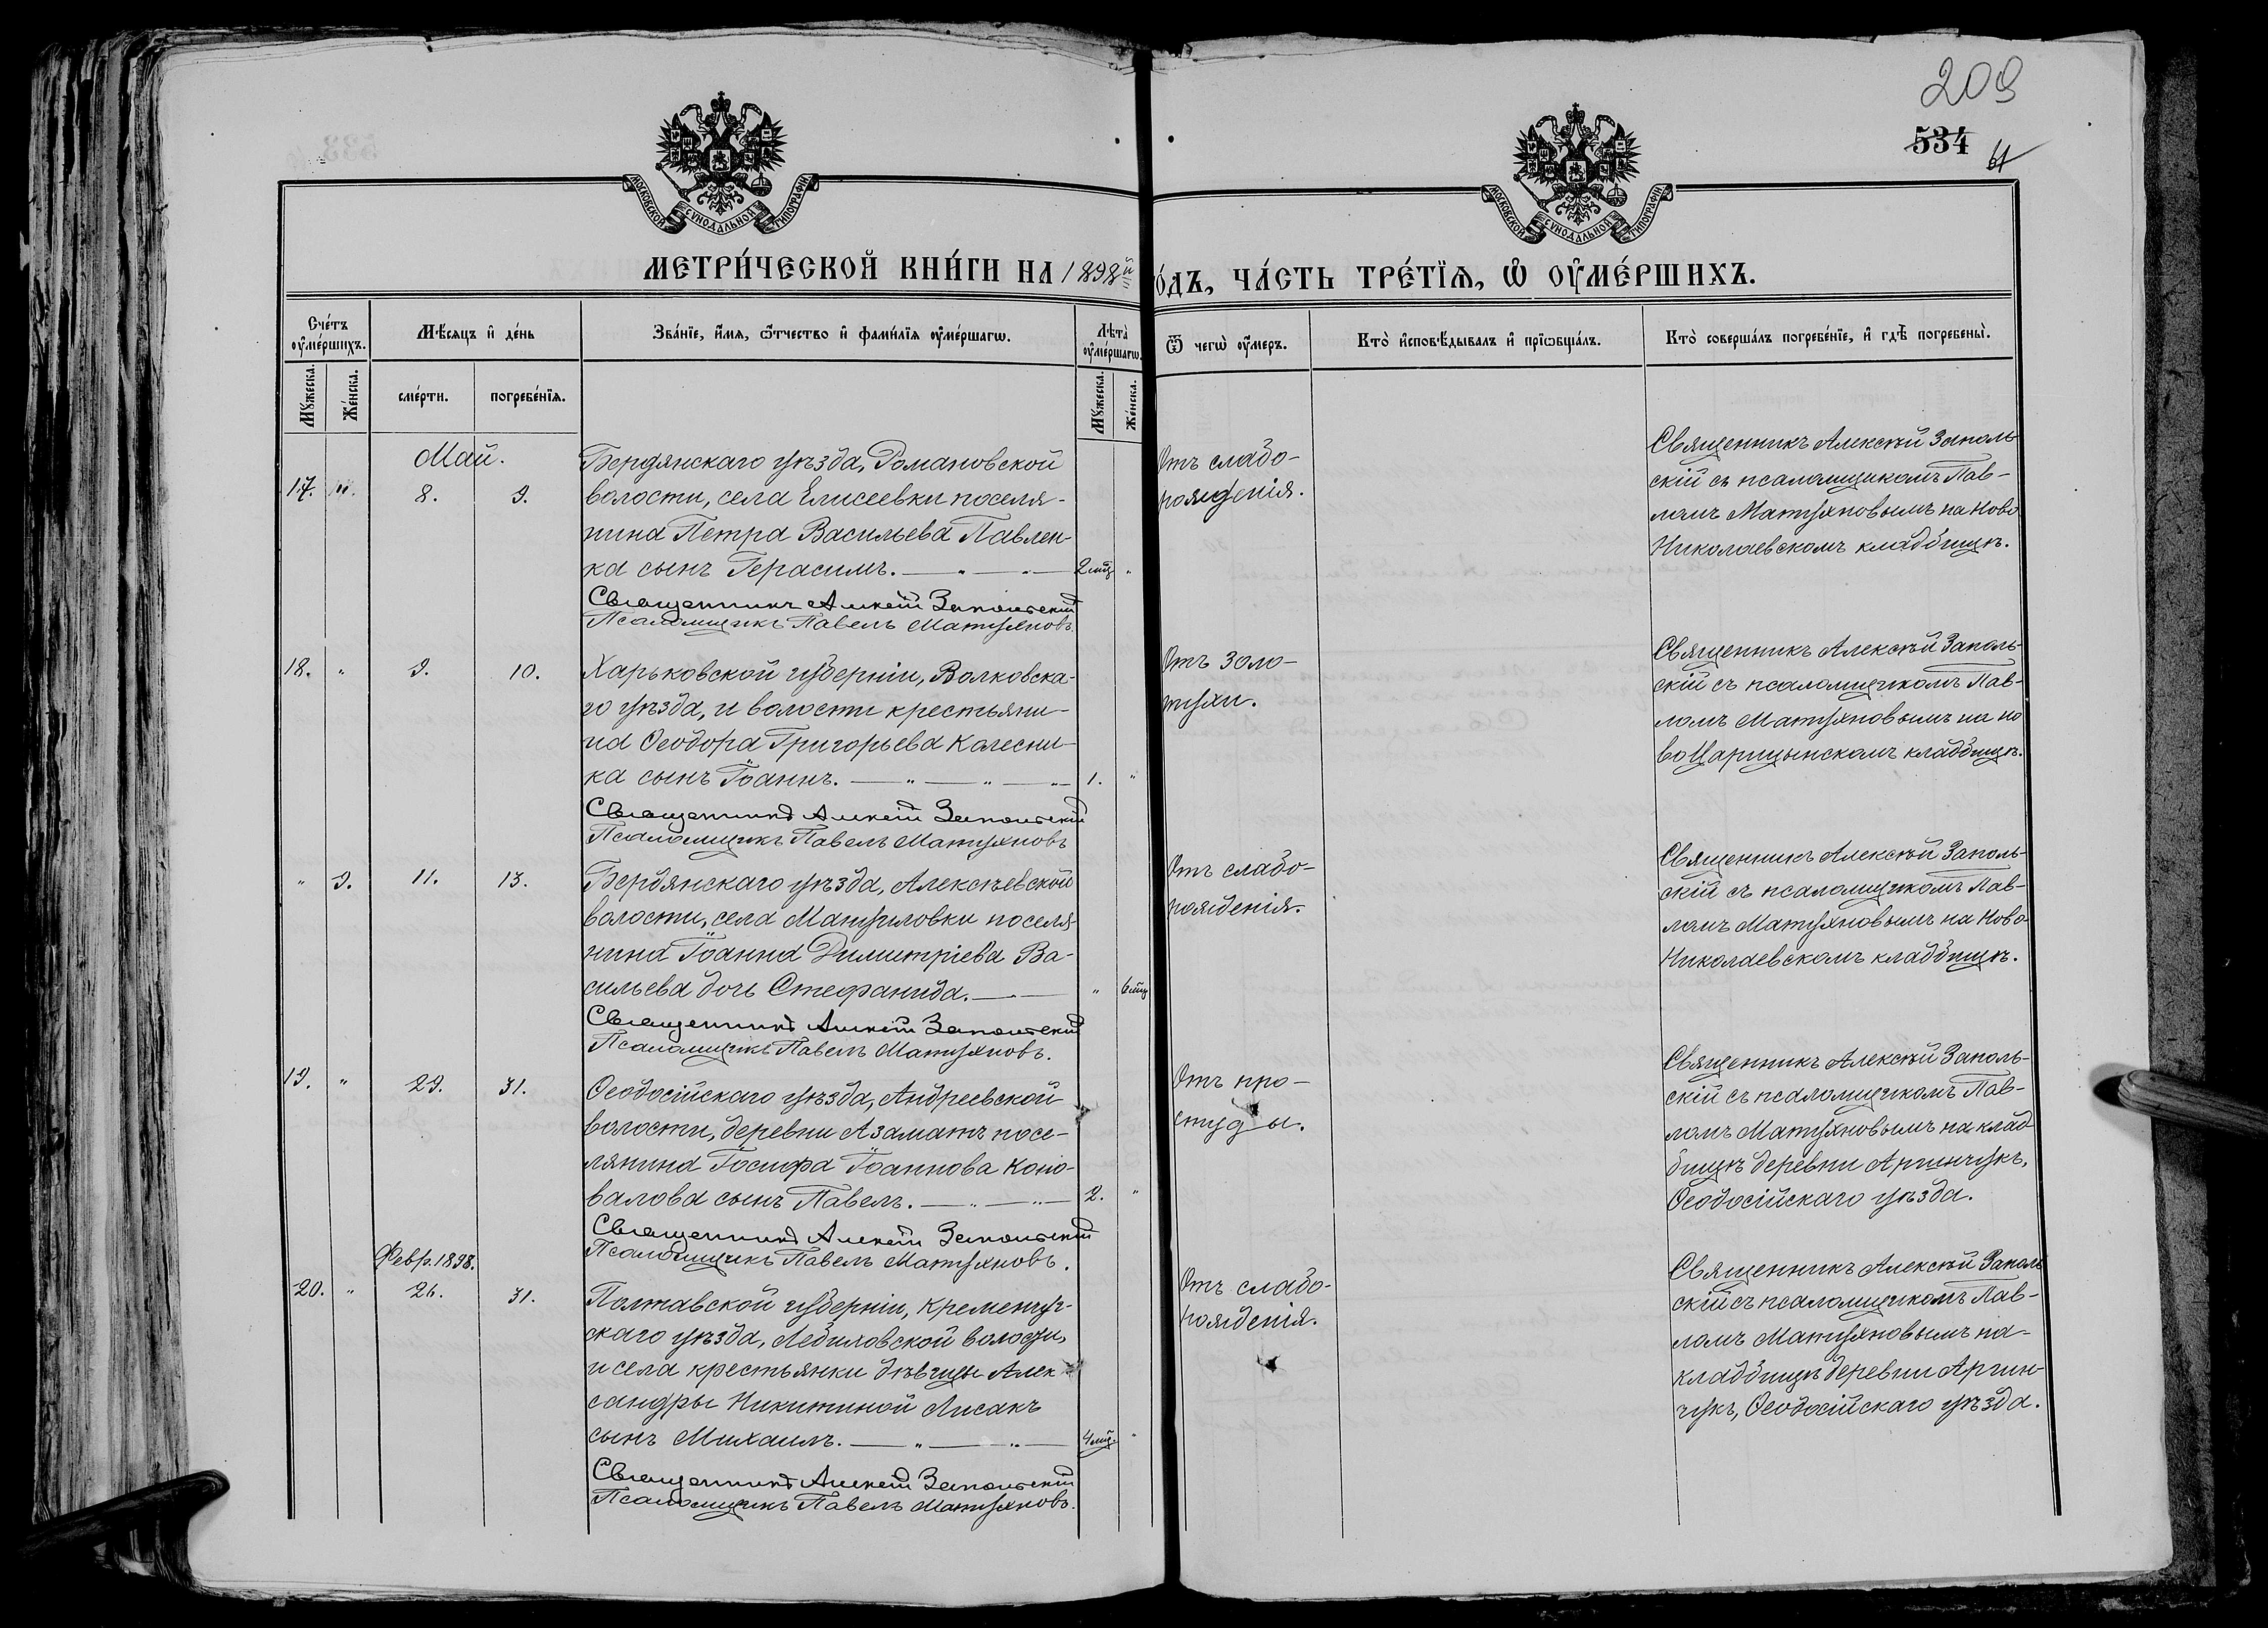 209
534
61
МОСКОВСКОЙ СУНОДАЛЬНОЙ ТИПОГРАФІИ
МОСКОВСКОЙ СУНОДАЛЬНОЙ ТИПОГРАФІИ
МЕТРИ́ЧЕСКОЙ КНИ́ГИ НА 1898й
о́дъ, ЧА́СТЬ ТРЕ́ТЇѦ, Ѡ҆ ОУ҆МЕ́РШИХЪ.
Сче́тъ оу҆ме́ршихъ.
Мѣ́сяцъ и҆ де́нь
Зва́нїе, и҆́мя, ѻ҆́тчество и҆ фами́лїя оу҆ме́ршагѡ.
Лѣ̀та оу҆ме́ршагѡ.
Ѿ чегѡ̀ оу҆́меръ.
Кто̀ и҆сповѣ́дывалъ и҆ прїѡбща́лъ.
Кто̀ соверша́лъ погребе́нїе, и҆ гдѣ̀ погребены̀.
Мꙋ́жеска.
Же́нска.
сме́рти.
погребе́нїя.
Мꙋ́жеска.
Же́нска.
Май.
17. 8. 9.
Бердянскаго уѣзда, Романовской
волости, села Елисеевки поселя-
нина Петра Васильева Павлен-
ка сынъ Герасимъ. — " — " — 2 мц. "
Священникъ Алексѣй Запольскій
Псаломщикъ Павелъ Матухновъ.
Отъ слабо-
рожденія.
Священникъ Алексѣй Заполь
скій съ псаломщикомъ Пав-
ломъ Матухновымъ на Ново
Николаевскомъ кладбищѣ.
18. " 9. 10.
Харьковской губерніи, Волковска-
го уѣзда, и волости крестьяни-
на Ѳеодора Григорьева Калесни-
ка сынъ Іоаннъ. — " — " — " — 1. "
Священникъ Алексѣй Запольскій
Псаломщикъ Павелъ Матухновъ
Отъ золо-
тухи.
Священникъ Алексѣй Заполь-
скій съ псаломщикомъ Пав-
ломъ Матухновымъ на но
воЦарицынскомъ кладбищѣ.
" 9. 11. 13.
Бердянскаго уѣзда, Алексѣевской
волости, села Мануиловки поселя
нина Іоанна Димитріева Ва-
сильева дочь Стефанида. — " 6 мц
Священникъ Алексѣй Запольскій
Псаломщикъ Павелъ Матухновъ.
Отъ слабо-
рожденія.
Священникъ Алексѣй Заполь-
скій съ псаломщикомъ Пав-
ломъ Матухновымъ на Ново-
Николаевскомъ кладбищѣ.
19. " 29. 31.
Ѳеодосійскаго уѣзда, Андреевской
волости, деревни Азаматъ посе-
лянина Іосифа Іоаннова Коно-
валова сынъ Павелъ. — " — " — 2. "
Священникъ Алексѣй Запольскій
Псаломщикъ Павелъ Матухновъ.
Отъ про-
студы.
Священникъ Алексѣй Заполь-
скій съ псаломщикомъ Пав-
ломъ Матухновымъ на клад
бищѣ деревни Аргинчукъ,
Ѳеодосійскаго уѣзда.
Февр. 1898.
20. " 26. 31.
Полтавской губерніи, Кременчуг-
скаго уѣзда, волости,
и села крестьянки дѣвицы Алек
сандры Никитиной Лисакъ
сынъ Михаилъ. — " — " — 4 мц. "
Священникъ Алексѣй Запольскій
Псаломщикъ Павелъ Матухновъ.
Отъ слабо-
рожденія.
Священникъ Алексѣй Заполь
скій съ псаломщикомъ Пав-
ломъ Матухновымъ на-
кладбищѣ деревни Аргин-
чукъ, Ѳеодосійскаго уѣзда.